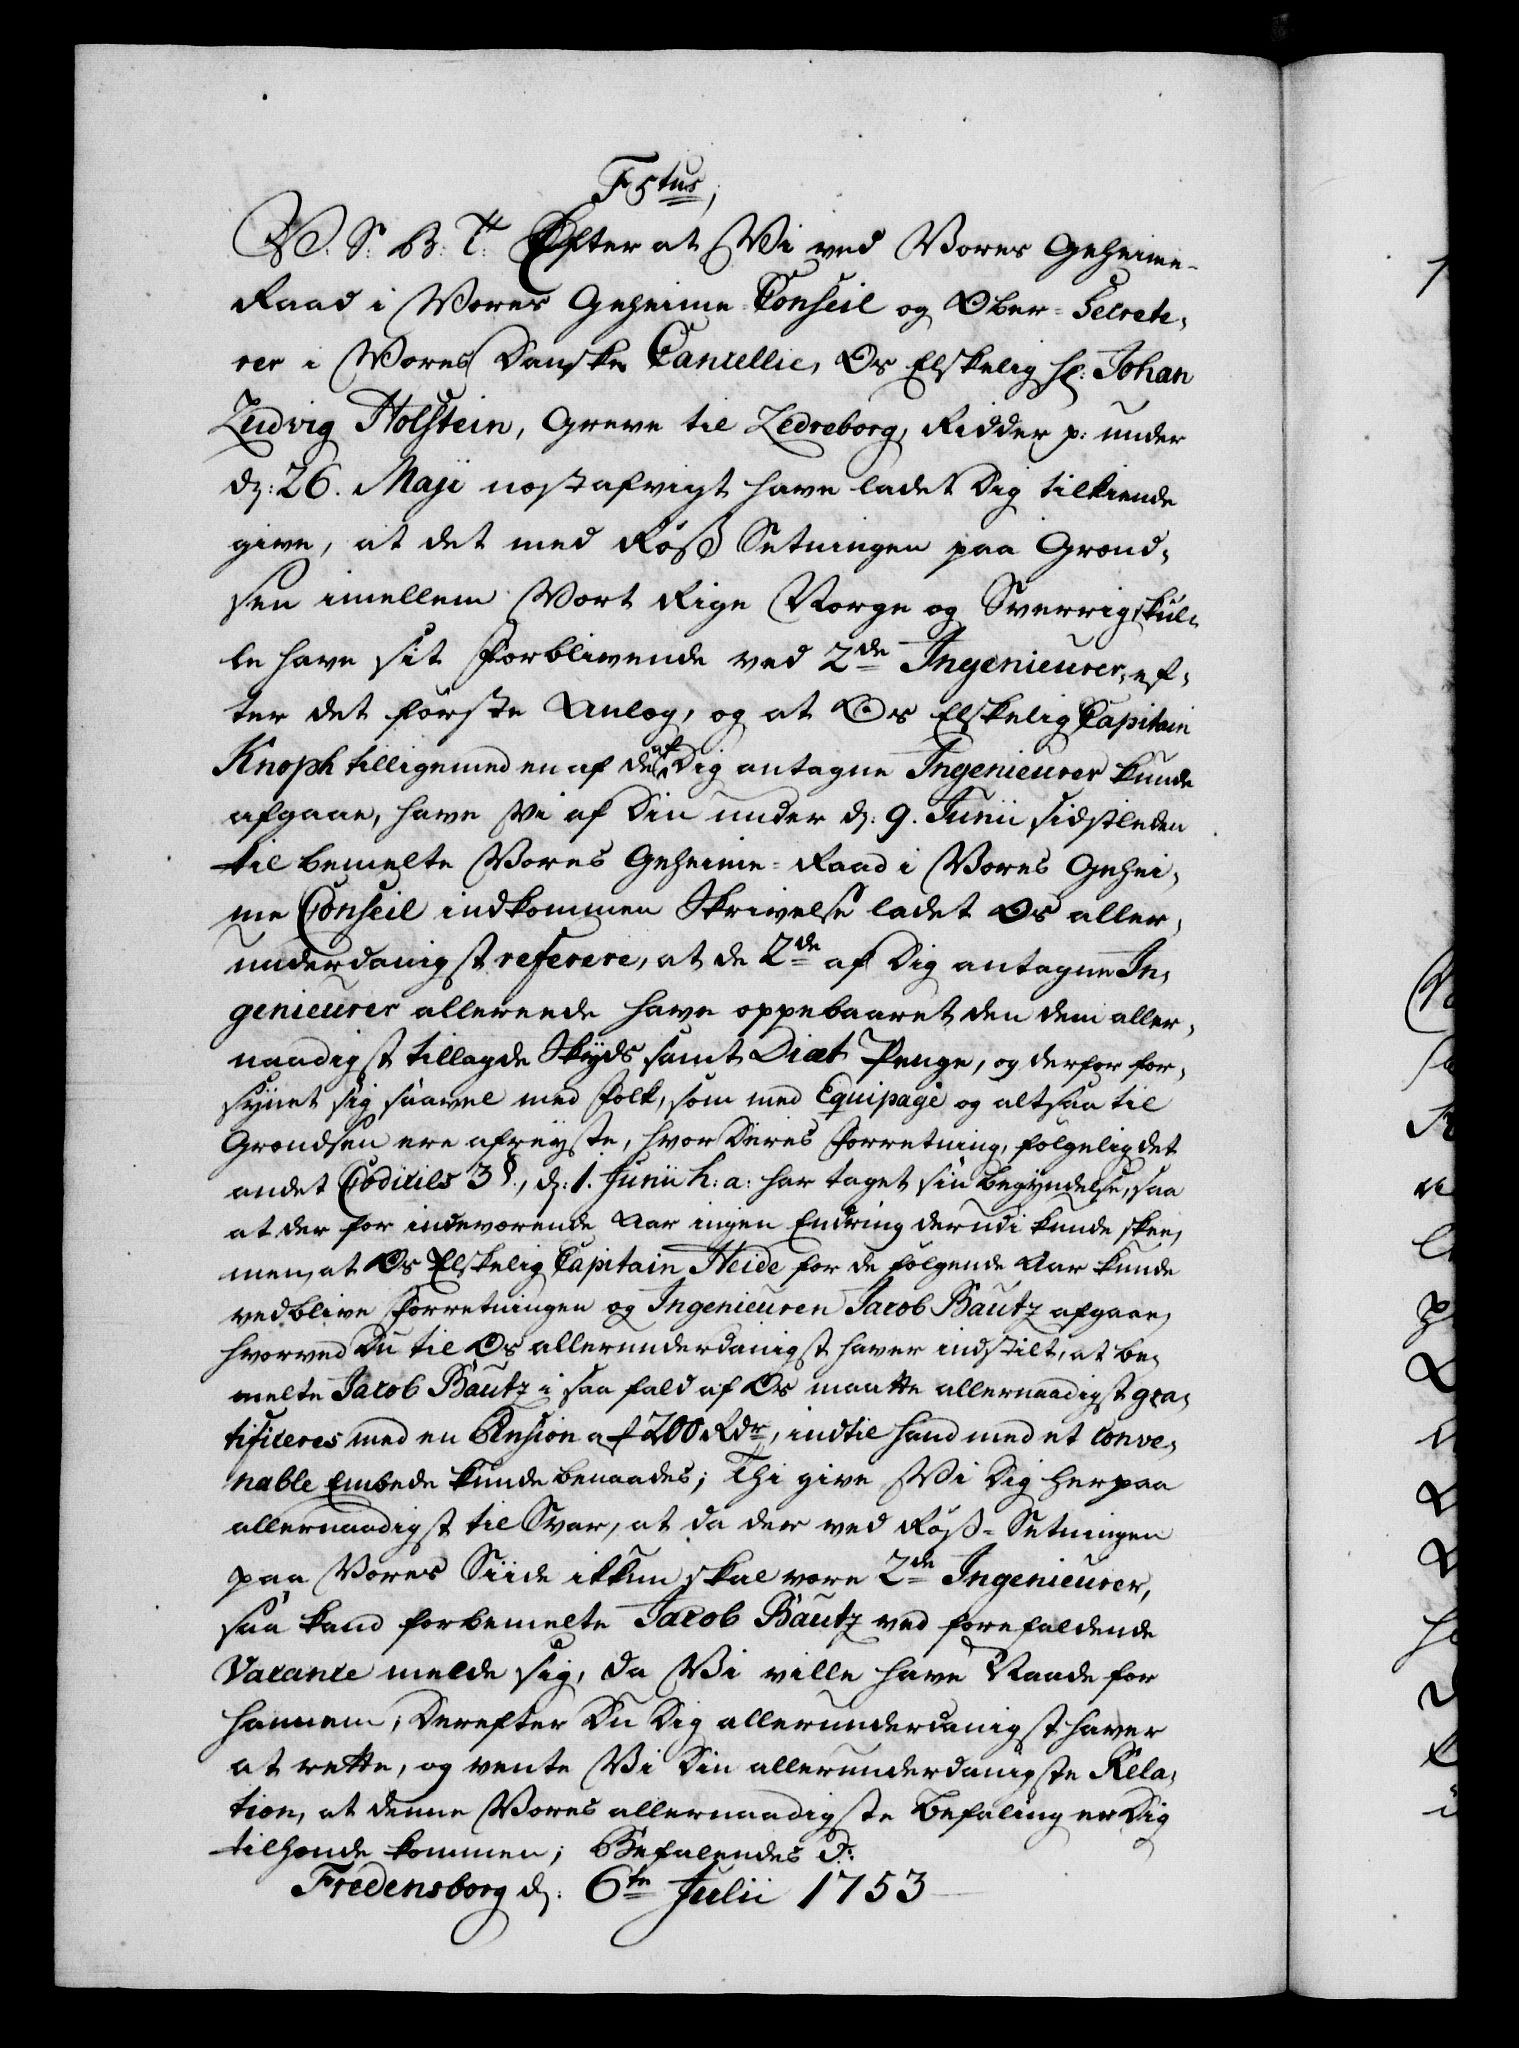 F 5tus,
V. S. B. T. Efter at Vi ved Vores Geheime-
Raad i Vores Geheime-Conseil og Ober-Secrete,
rer i Vores Danske Cancellie, Os Elskelig Hr: Johan
Ludvig Holstein, Greve til Ledreborg, Ridder p: under
d: 26. Maji nestafvigt have ladet Dig tilkiende
give, at det med Röss Setningen paa Grend,
sen imellem Vort Rige Norge og Sverrig skul,
le have sit Forblivende ved 2de Ingenieurer, ef,
ter det förste Anlæg, og at Os Elskelig Capitain
Knoph tilligemed en af de af Dig antagne Ingenieurer kunde
afgaae, have Vi af Din under d: 9. Junii sidstleden
til bemelte Vores Geheime-Raad i Vores Gehei,
me Conseil indkommen Skrivelse ladet Os aller,
underdanigst referere, at de 2de af Dig antagne In,
genieurer allereede have oppebaaret den dem aller,
naadigst tillagde Skyds samt Diæt Penge, og derfor for,
synet sig saavel med Folk, som med Equipage og altsaa til
Grendsen ere afreyste, hvor Deres Forretning, fölgelig det
andet Codicils 3 §., d: 1. Junii h: a: har taget sin Begyndelse, saa
at der for indeværende Aar ingen Endring derudi kunde skee,
men, at Os Elskelig Capitain Heide for de fölgende Aar kunde
vedblive Forretningen og Ingenieuren Jacob Bautz afgaae,
hvorved Du til Os allerunderdanigst haver indstilt, at be,
melte Jacob Bautz i saa fald af Os maatte allernaadigst gra,
tificeres med en Pension af 200 Rdr, indtil hand med et conve,
nable Embede kunde benaades; Thi give Vi Dig herpaa
allernaadigst til Svar, at da der ved Röss-Setningen
paa Vores Siide ikkun skal være 2de Ingenieurer,
saa kand forbemelte Jacob Bautz ved forefaldende
Vacance melde sig, da Vi ville have Naade for
hannem; Derefter Du Dig allerunderdanigst haver
at rette, og vente Vi Din allerunderdanigste Rela,
tion, at denne Vores allernaadigste Befaling er Dig
tilhende kommen; Befalendes D:
Fredensborg d: 6te Julii 1753